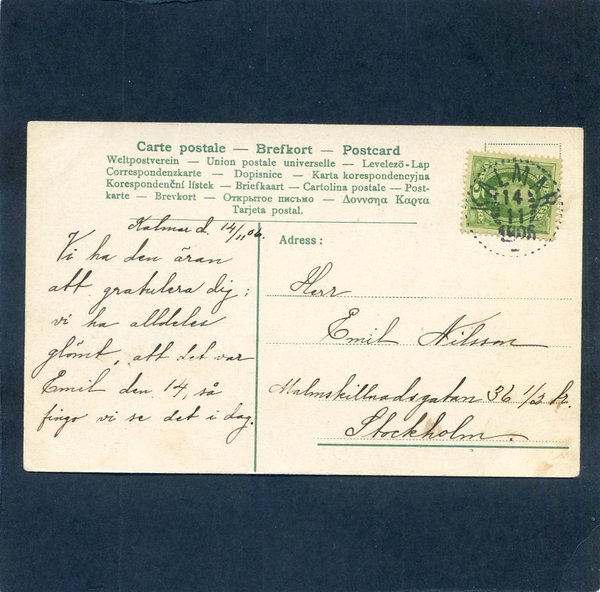 Carte postale — Brefkort — Postcard
Weltpostverein — Union postale universelle — Levelező-Lap
Correspondenzkarte — Dopisnice — Karta korespondencyjna
Korespondenční lístek — Briefkaart — Cartolina postale — Post-
karte — Brevkort — Открытое письмо — Δονυσηα Καρτα
Tarjeta postal.
KALMAR
14
11
1906
Kalmar d. 14/11 06.
Vi ha den äran
att gratulera dig;
vi ha alldeles
glömt, att det var
Emil den 14, så
fingo vi se det i dag.
Adress:
Herr
Emil Nilsson
Malmskillnadsgatan 36 1/3 tr.
Stockholm.